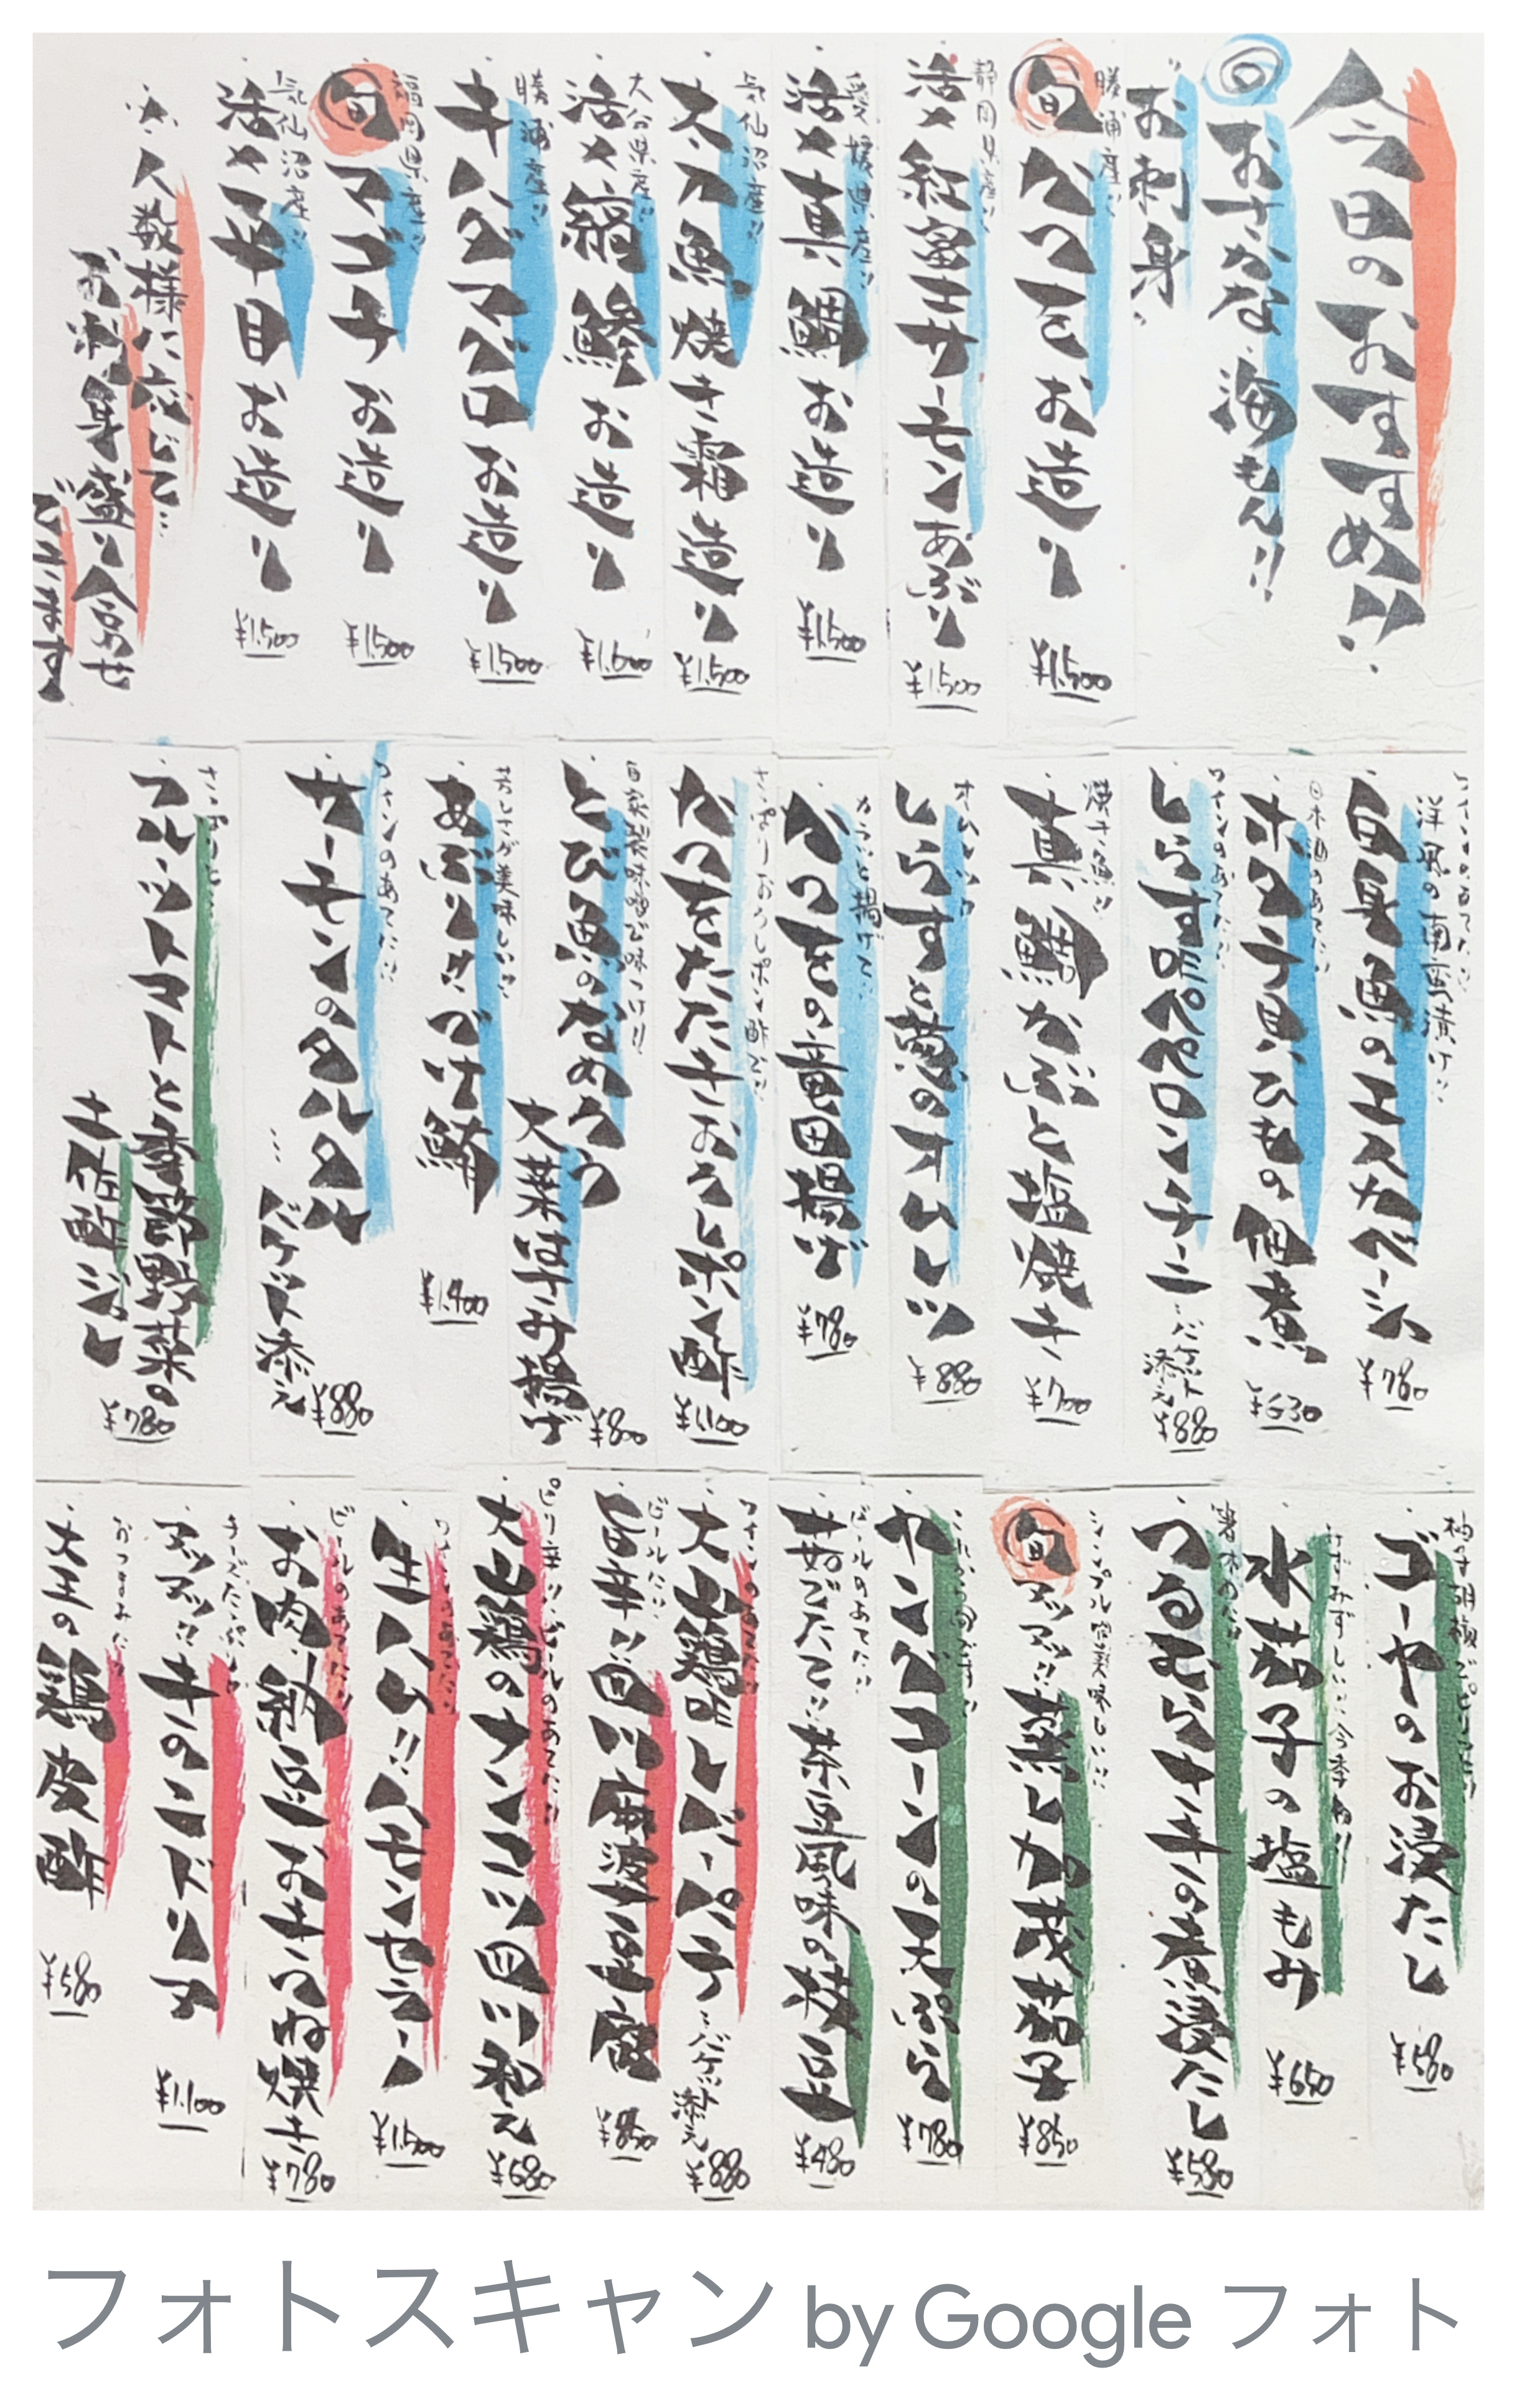 今日のおすすめ!!
おさかな海もん!!
お刺身
勝浦産!!
旬かつをお造り
¥1,500
静岡県産!!
活〆紅富士サーモンあぶり
¥1,500
愛媛県産!!
活〆真鯛お造り
¥1,500
気仙沼産!!
太刀魚焼き霜造り
¥1,500
大分県産!!
活〆縞鯵お造り
¥1,600
勝浦産!!
キハダマグロお造り
¥1,500
福岡県産!!
旬マゴチお造り
¥1,500
気仙沼産!!
活〆平目お造り
¥1,500
※人数様に応じて…
お刺身盛り合せ
できます
洋風の南蛮漬け!!
白身魚のエスカベーシュ
¥780
日本酒のあてに!!
ホタテ貝ひもの佃煮
¥630
ワインのあてに!!
しらすのペペロンチーニ
…バケット
添え
¥880
焼き魚!!
真鯛かぶと塩焼き
¥700
しらすと葱のオムレツ
¥880
カラッと揚げて!!
かつをの竜田揚げ
¥780
さっぱりおろしポン酢で!!
かつをたたきおろしポン酢
¥1,100
自家製味噌で味つけ!!
とび魚のなめろう
大葉はさみ揚げ
¥800
芳しさが美味しい!!
あぶりづけ鮪
¥1,400
ワインのあてに!!
サーモンのタルタル
…バケット添え
¥880
さっぱりと!!
フルーツトマトと季節野菜の
土佐酢ジュレ
¥780
柚子胡椒でピリッと!!
ゴーヤのお浸たし
¥580
みずみずしい!!今季初!!
水茄子の塩もみ
¥650
箸休めに!!
つるむらさきの煮浸たし
¥580
シンプル is 美味しい!!
旬アツアツ!!蒸し加茂茄子
¥850
これから旬です!!
ヤングコーンの天ぷら
¥780
ビールのあてに!!
茹でたて!!茶豆風味の枝豆
¥480
ワインのあてに!!
大山鶏レバーパテ
…バケット
添え
¥880
ビールに!!
旨辛!!四川麻婆豆腐
¥850
ピリ辛!!ビールのあてに!!
大山鶏のナンコツ四川和え
¥680
生ハム!!ハモンセラーノ
¥1,500
ビールのあてに!!
お肉、納豆おきつね焼き
¥780
チーズたっぷり!!
アツアツ!!キのコドリア
¥1,100
おつまみに!!
大王の鶏皮酢
¥580
フォトスキャン by Google フォト